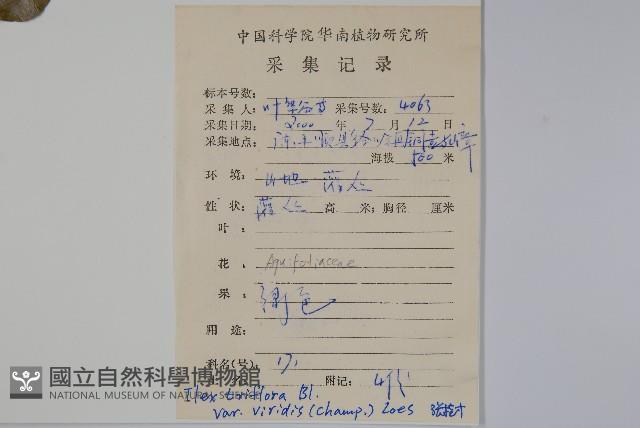 中国科学院华南植物研究所
采集记录
标本号数:
采集人: 叶华谷 采集号数: 4063
采集日期: 2000 年 7 月 12 日
采集地点:
海拔 100 米
环境: 山地 灌丛
性状: 灌丛 高 米; 胸径 厘米
叶:
花: Aquifoliaceae
果: 绿色
用途:
科名(号) 171
附记: 4份
Ilex triflora Bl.
var. viridis (champ.) Loes
國立自然科學博物館
NATIONAL MUSEUM OF NATURAL SCIENCE